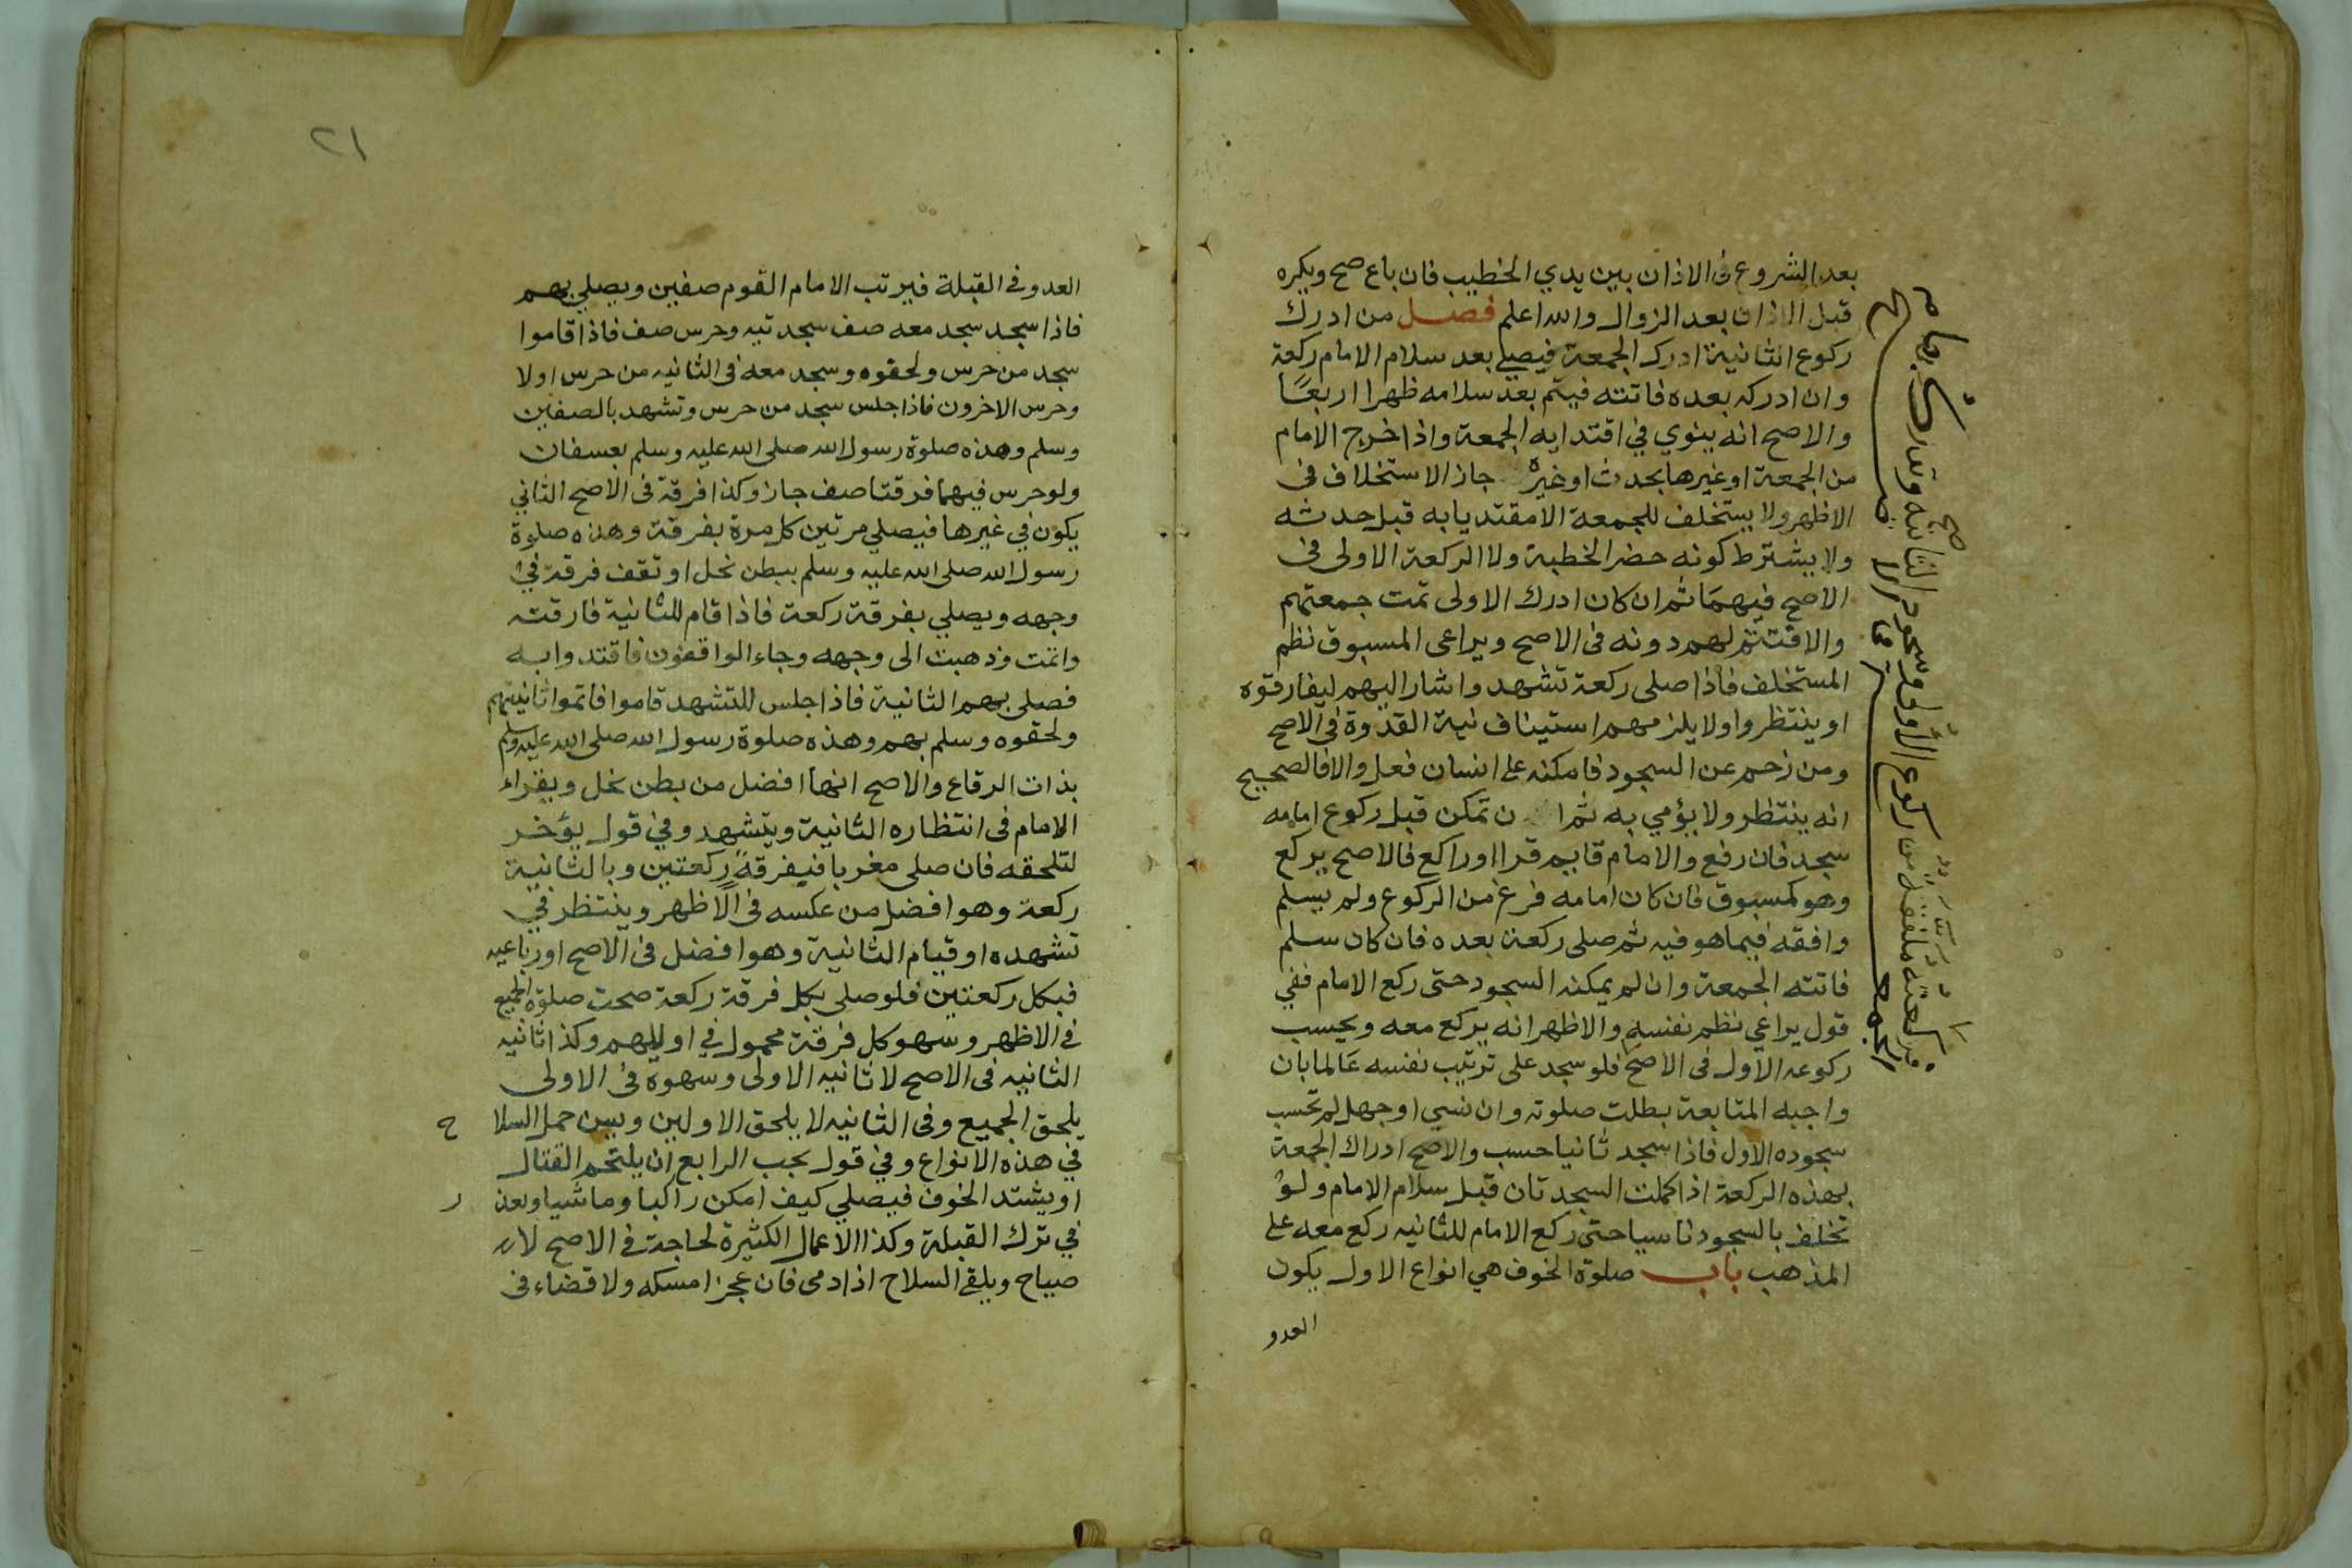 بعد الشروع فى الاذان بين يدي الخطيب فان باع صح ويكره
قبل الاذان بعد الزوال والله اعلم فصل من ادرك
ركوع الثانية ادرك الجمعة فيصلي بعد سلام الامام ركعة
وان ادركه بعده فاتته فيتم بعد سلامه ظهرا اربعًا
والاصح انه ينوي في اقتدايه الجمعة واذا خرج الامام
من الجمعة او غيرها بحدث او غيره جاز الاستخلاف فى
الاظهر ولا يستخلف للجمعة الا مقتديا به قبل حدثه
ولا يشترط كونه حضر الخطبة ولا الركعة الاولى فى
الاصح فيهما ثم ان كان ادرك الاولى تمت جمعتهم
والا فتتم لهم دونه فى الاصح ويراعى المسبوق نظم
المستخلف فاذا صلى ركعة تشهد واشار اليهم ليفارقوه
او ينتظروا ولا يلزمهم استيناف نية القدوة فى الاصح
ومن زحم عن السجود فامكنه على انسان فعل والا فالصحيح
انه ينتظر ولا يؤمي به ثم ا ن تمكن قبل ركوع امامه
سجد فان رفع والامام قايم قرا او راكع فالاصح يركع
وهو كمسبوق فان كان امامه فرغ من الركوع ولم يسلم
وافقه فيما هو فيه ثم صلى ركعة بعده فان كان سلم
فاتته الجمعة وان لم يمكنه السجود حتى ركع الامام ففي
قول يراعي نظم نفسه والاظهر انه يركع معه ويحسب
ركوعه الاول فى الاصح فلو سجد على ترتيب نفسه عالما بان
واجبه المتابعة بطلت صلوته وان نسي او جهل لم تحسب
سجوده الاول فاذا سجد ثانيا حسب والاصح ادراك الجمعة
بهذه الركعة اذا كملت السجدتان قبل سلام الامام ولو
تخلف بالسجود ناسيا حتى ركع الامام للثانيه ركع معه على
المذهب باب صلوة الخوف هي انواع الاول يكون
العدو
فركعته ملفقة من ركوع الاولى وسجود الثانيه وتدرك بها
صح
الجمعة
٢١
العدو في القبلة فيرتب الامام القوم صفين ويصلي بهم
فاذا سجد سجد معه صف سجدتيه وحرس صف فاذا قاموا
سجد من حرس ولحقوه وسجد معه فى الثانيه من حرس اولا
وحرس الاخرون فاذا جلس سجد من حرس وتشهد بالصفين
وسلم وهذه صلوة رسول الله صلى الله عليه وسلم بعسفان
ولو حرس فيهما فرقتا صف جاز وكذا فرقة فى الاصح الثاني
يكون في غيرها فيصلي مرتين كل مرة بفرقة وهذه صلوة
رسول الله صلى الله عليه وسلم ببطن نخل او تقف فرقة في
وجهه ويصلي بفرقة ركعة فاذا قام للثانية فارقته
واتمت وذهبت الى وجهه وجاء الواقفون فاقتدوا به
فصلى بهم الثانية فاذا جلس للتشهد قاموا فاتموا ثانيتهم
ولحقوه وسلم بهم وهذه صلوة رسول الله صلى الله عليه وسلم
بذات الرقاع والاصح انها افضل من بطن نخل ويقراء
الامام فى انتظاره الثانية ويتشهد وفي قول يؤخر
لتلحقه فان صلى مغربا فبفرقة ركعتين وبالثانية
ركعة وهو افضل من عكسه فى الاظهر وينتظر في
تشهده او قيام الثانية وهو افضل فى الاصح او رباعيه
فبكل ركعتين فلو صلى بكل فرقة ركعة صحت صلوة الجميع
في الاظهر وسهو كل فرقة محمول في اوليهم وكذا ثانيه
الثانيه فى الاصح لا ثانيه الاولى وسهوه فى الاولى
يلحق الجميع وفى الثانيه لا يلحق الاولين ويسن حمل السلا ح
في هذه الانواع وفي قول يجب الرابع ان يلتحم القتال
او يشتد الخوف فيصلي كيف امكن راكبا وماشيا ويعذ ر
في ترك القبلة وكذا الاعمال الكثيرة لحاجة في الاصح لا
صياح ويلقي السلاح اذا دمى فان عجز امسكه ولا قضاء فى